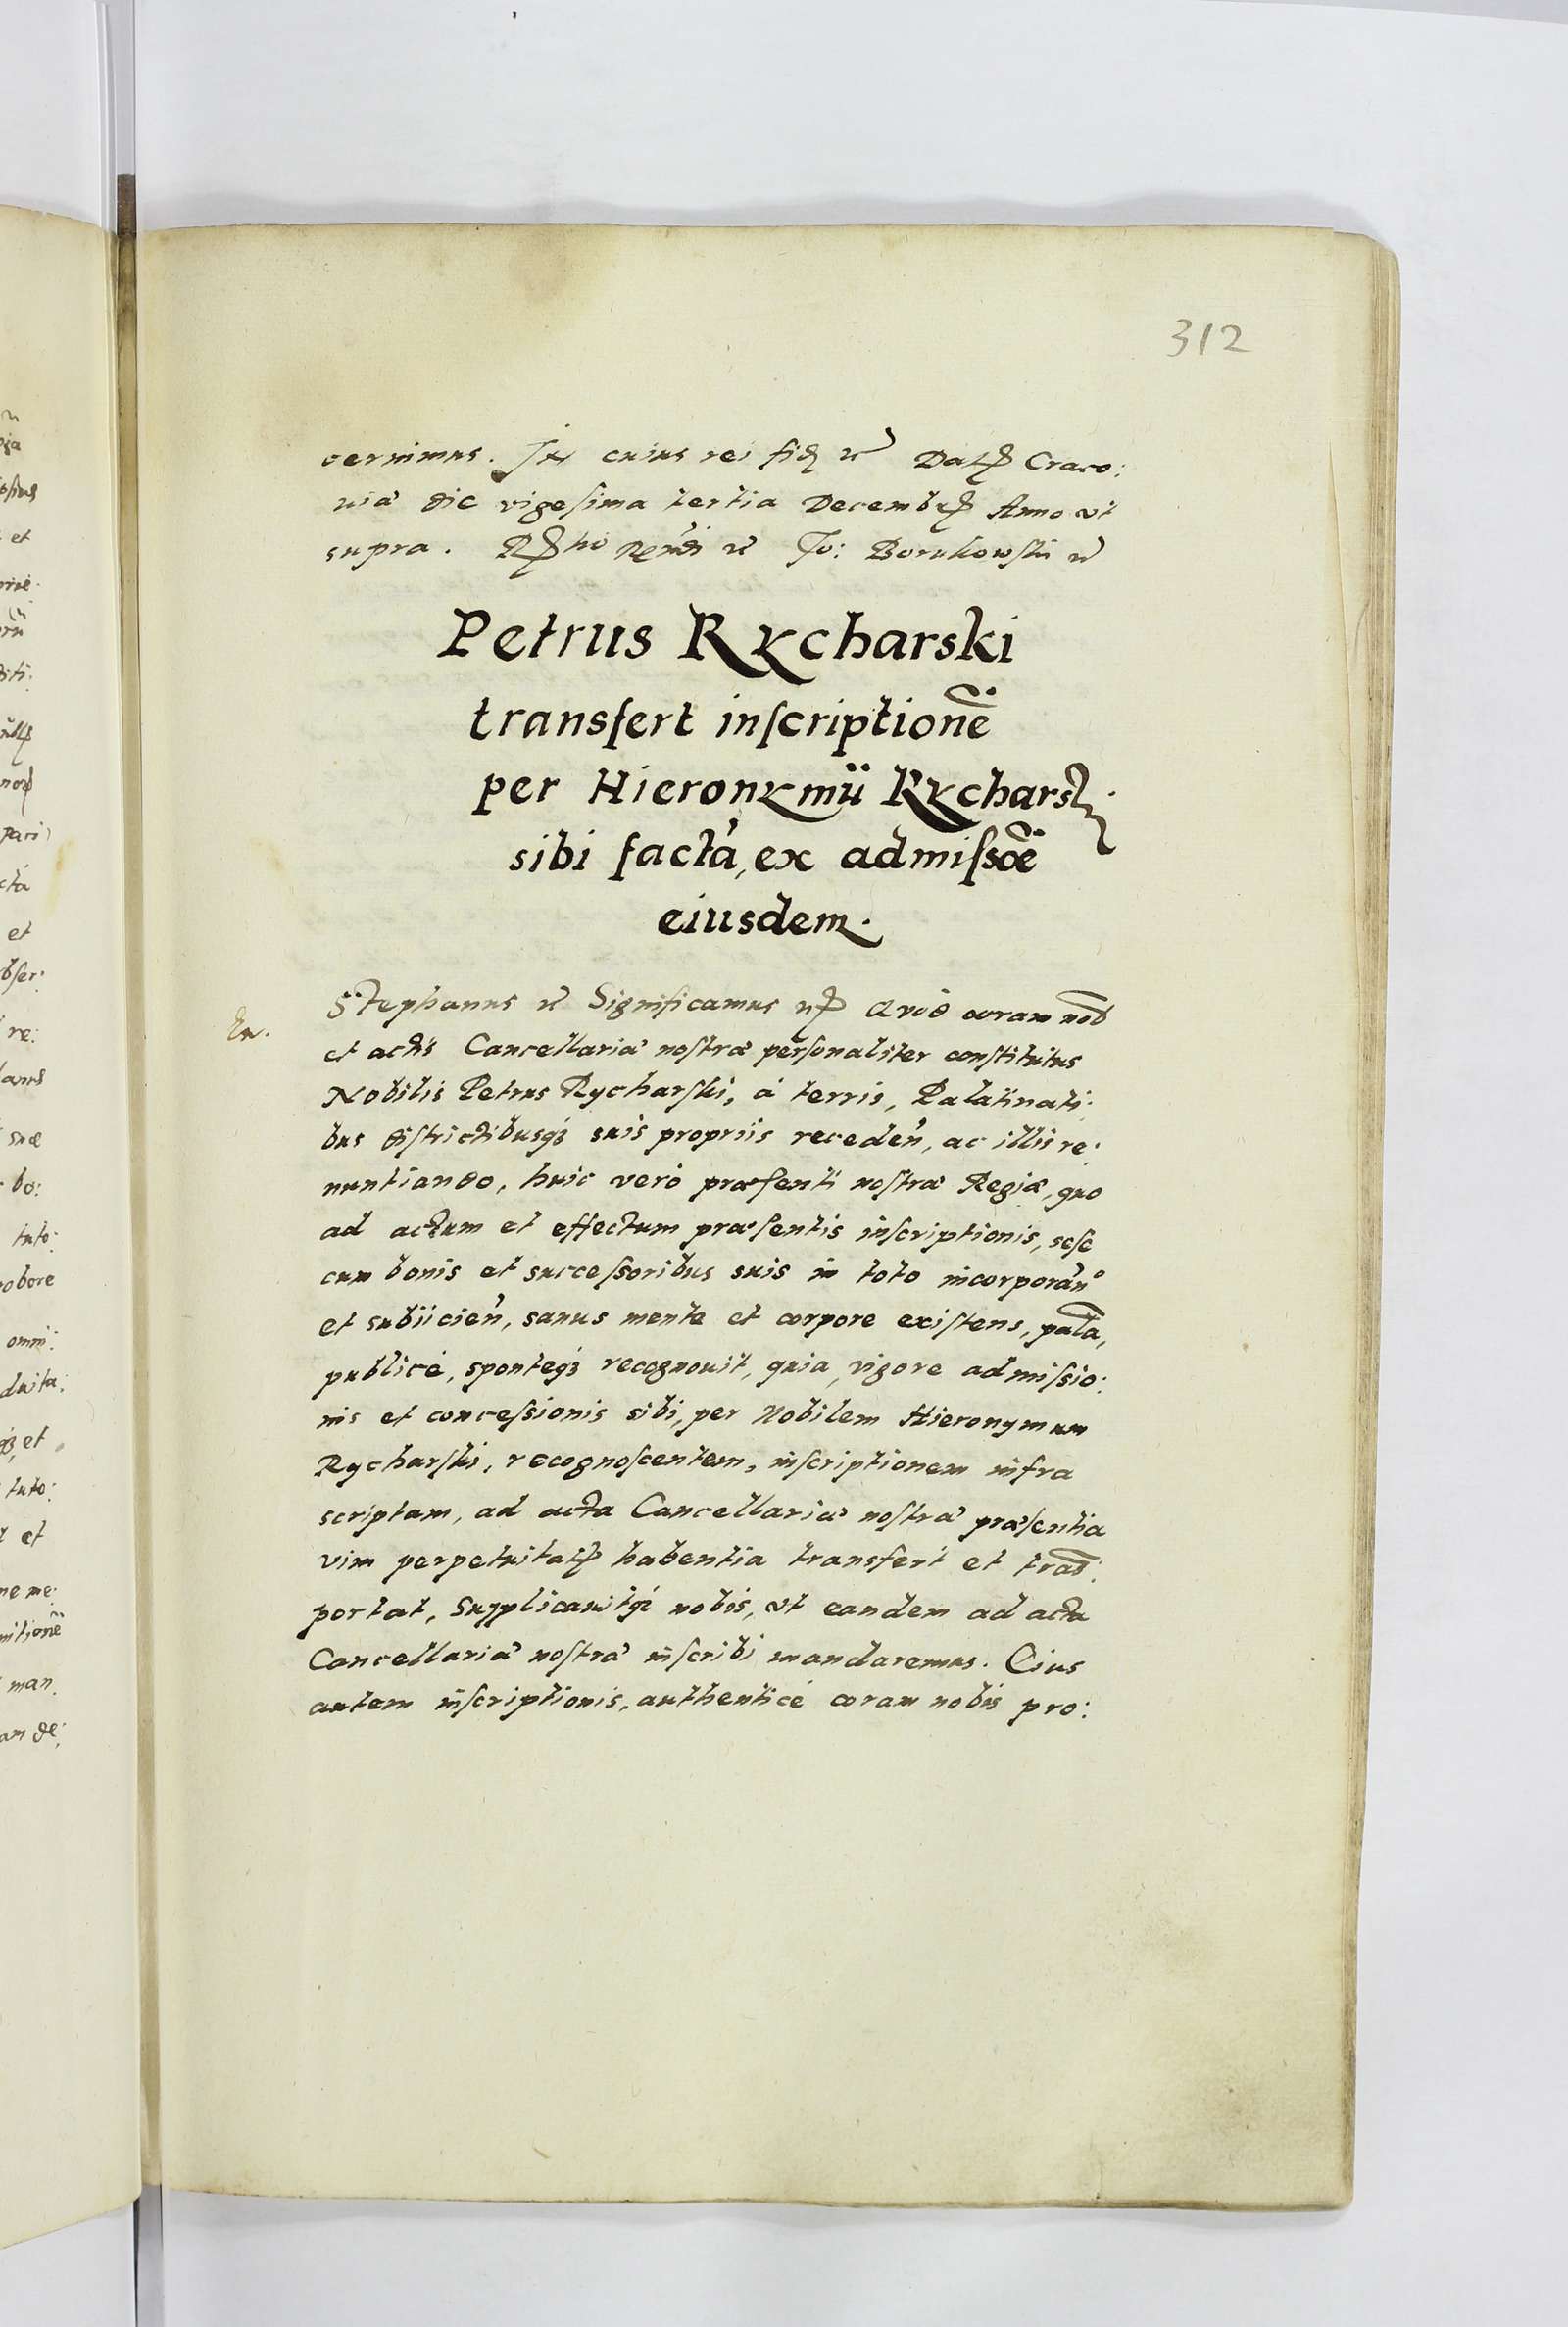 312
cernimus. In cuius rei fidē etc Datꝭ Craco:
uiæ die vigesima tertia Decembrꝭ Anno vt
supra. Rꝭtio Reuen̄di etc Jo: Borukowski etc
Petrus Rycharski
transfert inscriptionē
per Hieronymū Rycharsꝭ.
sibi factā, ex admissōe
eiusdem.
Stephanus etc Significamus etc Quod coram nob̄
et actis Cancellariæ nostræ personaliter constitutus
Nobilis Petrus Rycharski, à terris, Palatinati:
bus districtibusqꝫ suis propriis receden̄, ac illis re:
nuntiando, huic verò præsenti nostræ Regiæ, quo
ad actum et effectum præsentis inscriptionis, sese
cum bonis et successoribus suis in toto incorporan̄º
et subiicien̄, sanus mente et corpore existens, palā,
publicè, sponteqꝫ recognouit, quia, vigore admissio:
nis et concessionis sibi, per Nobilem Hieronymum
Rycharski, recognoscentem, inscriptionem infra
scriptam, ad acta Cancellariæ nostræ præsentia
vim perpetuitatꝭ habentia transfert et trās:
portat, Supplicauitqꝫ nobis, vt eandem ad acta
Cancellariæ nostræ inscribi mandaremus. Cius
autem inscriptionis, authenticè coram nobis pro: